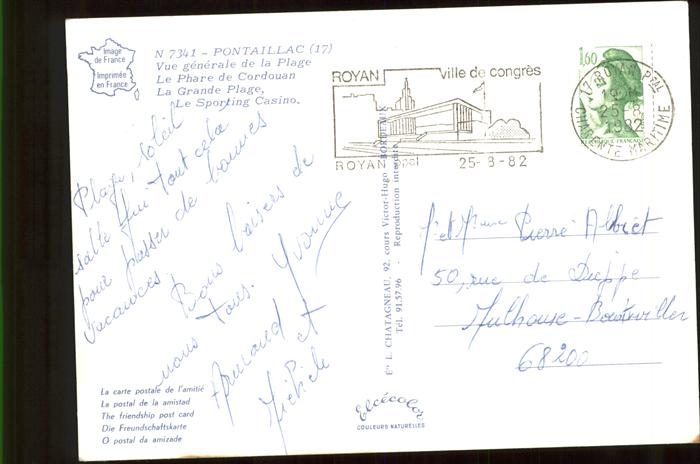 Image
de France
Imprimée
en France
N 7341 - PONTAILLAC (17)
Vue générale de la Plage
Le Phare de Cordouan
La Grande Plage,
Le Sporting Casino.
Plage, soleil
salle qui tout cela
pour passer de bonnes
vacances.
Bons baisers de
nous tous. Yvonne
Armand et
Michèle
La carte postale de l'amitié
La postal de la amistad
The friendship post card
Die Freundschaftskarte
O postal da amizade
Éts L. CHATAGNEAU, 92, cours Victor-Hugo BORDEAUX
Tél. 91.57.96 - Reproduction interdite
Elcécolor
COULEURS NATURELLES
ROYAN ville de congrès
ROYAN ppal 25-8-82
1,60
17 ROYAN Ppal
25-8
1982
CHARENTE MARITIME
Mr et Mme Pierre Albiet
50, rue de Dieppe
Mulhouse-Bourtzwiller
68200